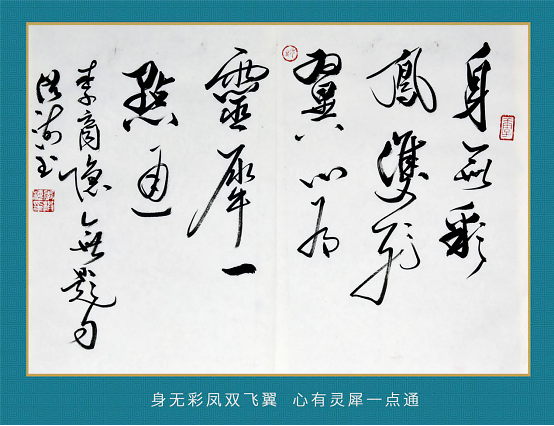 身無彩
鳳雙飛
翼心有
靈犀一
點通
李商隱無題句
身无彩凤双飞翼 心有灵犀一点通